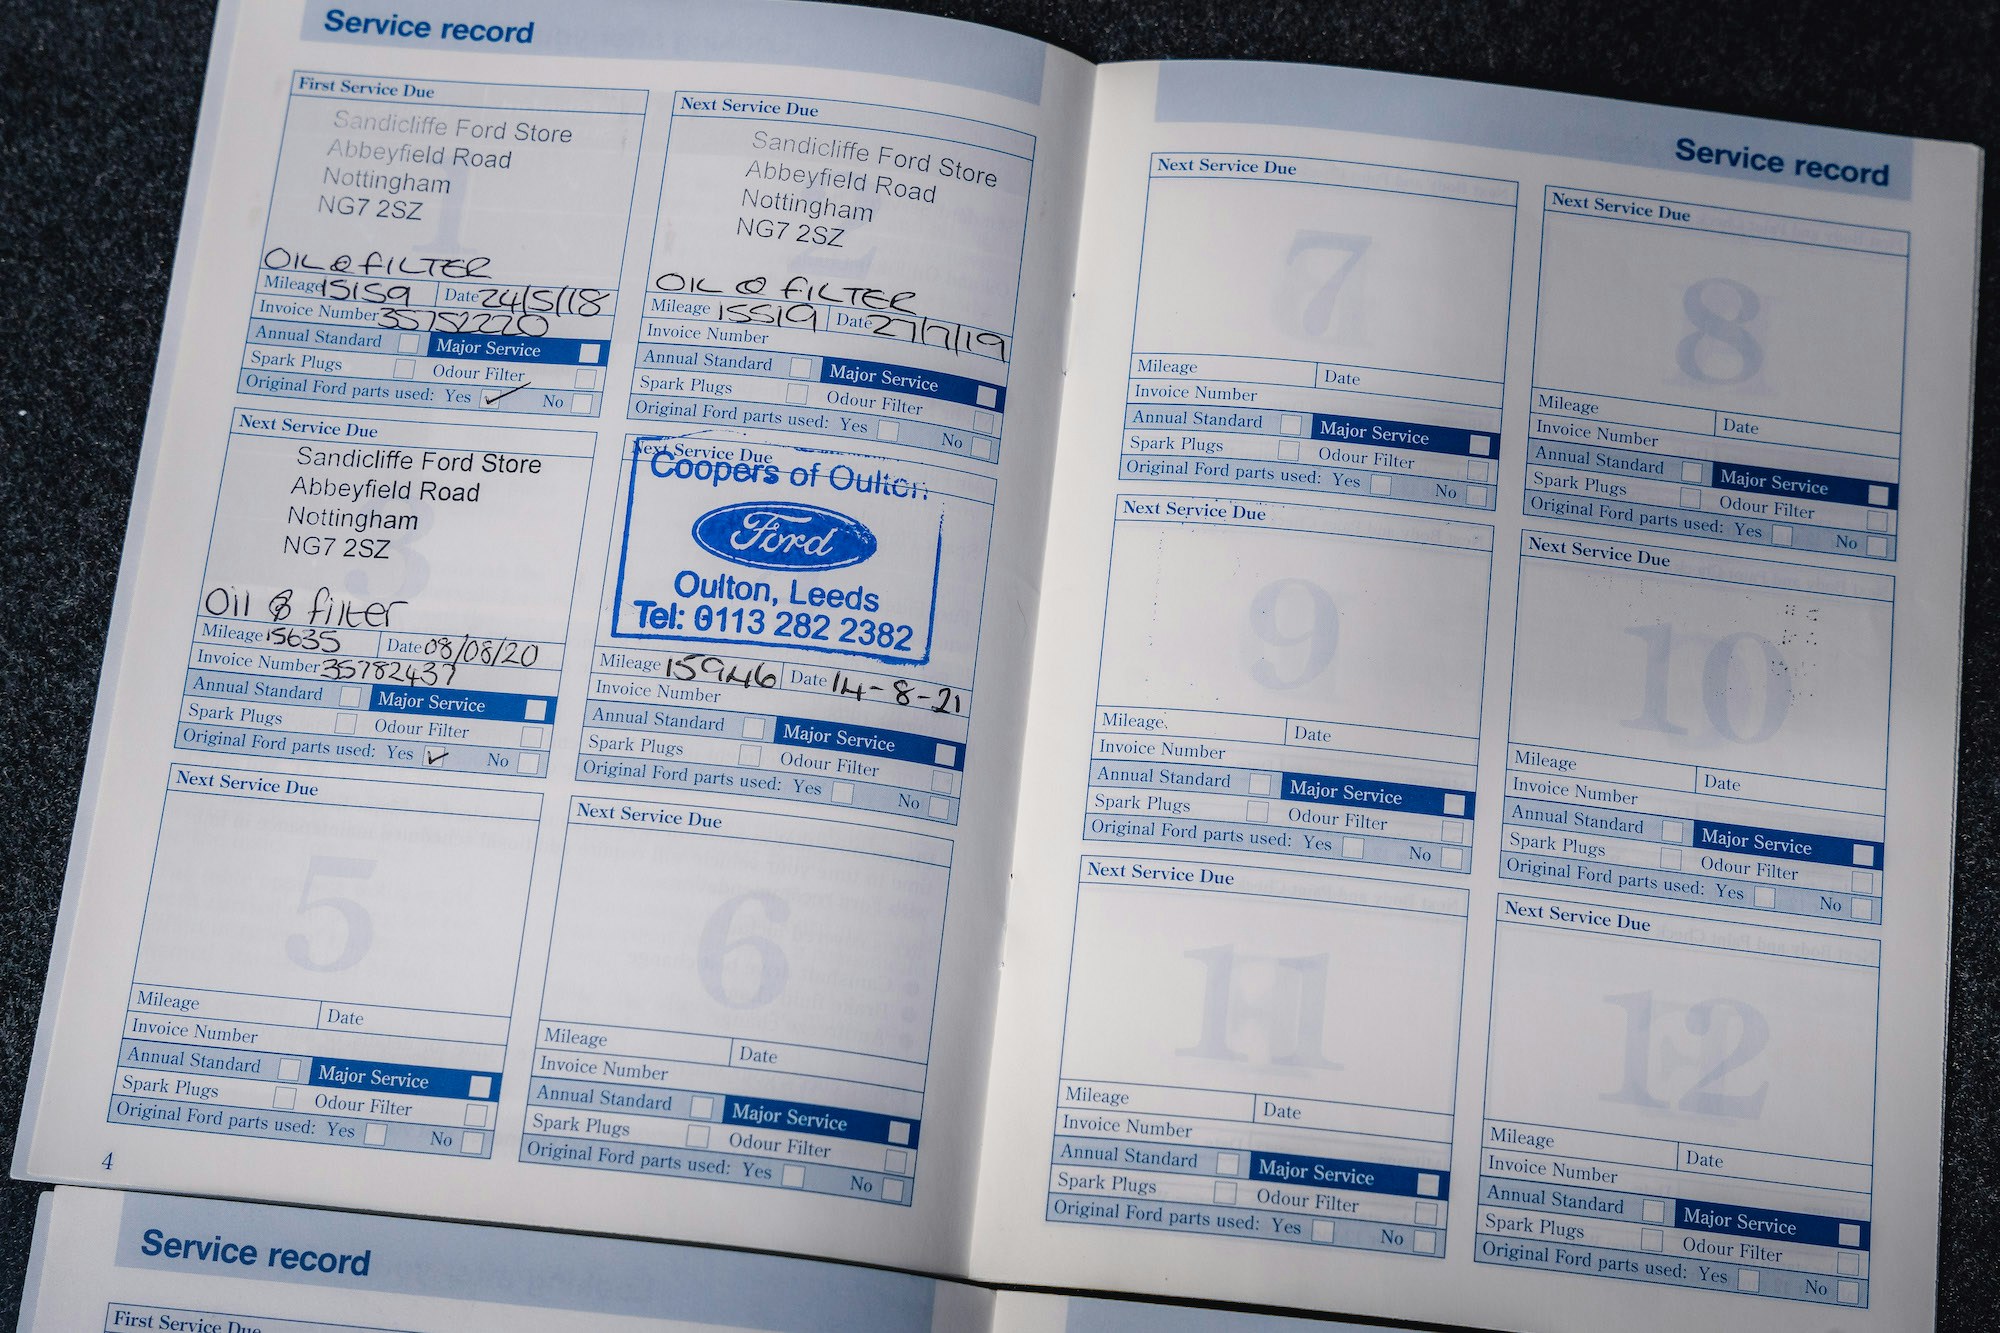 Service record
First Service Due
Sandicliffe Ford Store
Abbeyfield Road
Nottingham
NG7 2SZ
1
OIL & FILTER
Mileage 15159 Date 24/5/18
Invoice Number 35752220
Annual Standard Major Service
Spark Plugs Odour Filter
Original Ford parts used: Yes ✓ No
Next Service Due
Sandicliffe Ford Store
Abbeyfield Road
Nottingham
NG7 2SZ
2
OIL & FILTER
Mileage 15519 Date 27/7/19
Invoice Number
Annual Standard Major Service
Spark Plugs Odour Filter
Original Ford parts used: Yes No
Next Service Due
Sandicliffe Ford Store
Abbeyfield Road
Nottingham
NG7 2SZ
3
Oil & filter
Mileage 15635 Date 08/08/20
Invoice Number 35782437
Annual Standard Major Service
Spark Plugs Odour Filter
Original Ford parts used: Yes ✓ No
Next Service Due
Coopers of Oulton
Ford
Oulton, Leeds
Tel: 0113 282 2382
Mileage 15946 Date 14-8-21
Invoice Number
Annual Standard Major Service
Spark Plugs Odour Filter
Original Ford parts used: Yes No
Next Service Due
5
Mileage Date
Invoice Number
Annual Standard Major Service
Spark Plugs Odour Filter
Original Ford parts used: Yes No
Next Service Due
6
Mileage Date
Invoice Number
Annual Standard Major Service
Spark Plugs Odour Filter
Original Ford parts used: Yes No
4
Service record
Next Service Due
7
Mileage Date
Invoice Number
Annual Standard Major Service
Spark Plugs Odour Filter
Original Ford parts used: Yes No
Next Service Due
8
Mileage Date
Invoice Number
Annual Standard Major Service
Spark Plugs Odour Filter
Original Ford parts used: Yes No
Next Service Due
9
Mileage Date
Invoice Number
Annual Standard Major Service
Spark Plugs Odour Filter
Original Ford parts used: Yes No
Next Service Due
10
Mileage Date
Invoice Number
Annual Standard Major Service
Spark Plugs Odour Filter
Original Ford parts used: Yes No
Next Service Due
11
Mileage Date
Invoice Number
Annual Standard Major Service
Spark Plugs Odour Filter
Original Ford parts used: Yes No
Next Service Due
12
Mileage Date
Invoice Number
Annual Standard Major Service
Spark Plugs Odour Filter
Original Ford parts used: Yes No
Service record
First Service Due